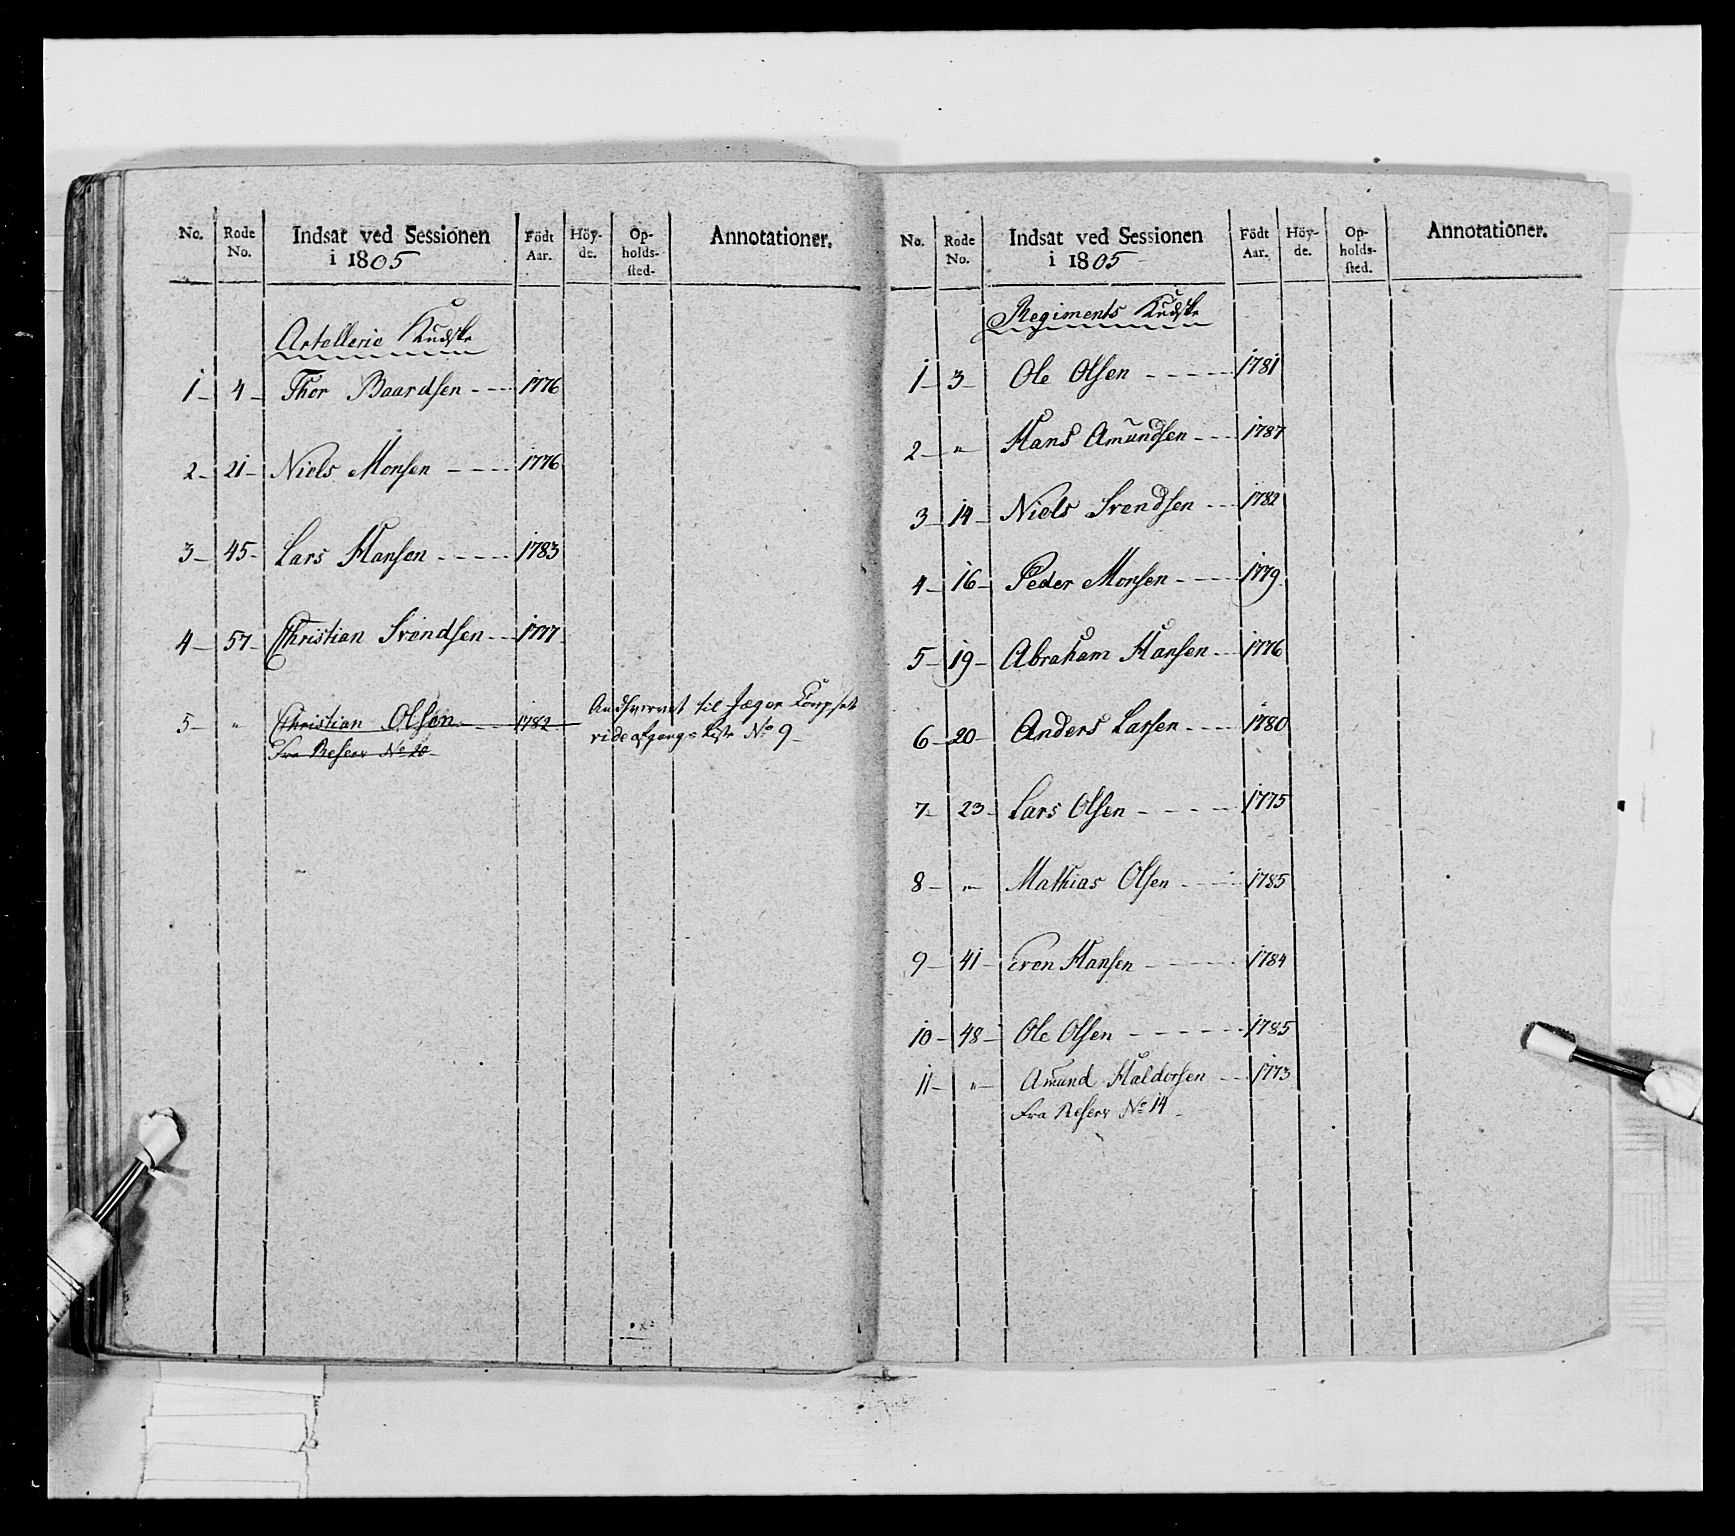 No. Rode No. Indsat ved Sessionen i 1805 Födt Aar. Höy-de. Op-holds-sted. Annotationer.
Artellerie Kudske
1 4 Thor Baardsen 1776
2 21 Niels Monsen 1776
3 45 Lars Hansen 1783
4 57 Christian Svendsen 1777
5 " Christian Olsen 1782 til Jæger Corpset
Fra Reserv No 20 vide afgangs Liste No 9
No. Rode No. Indsat ved Sessionen i 1805 Födt Aar. Höy-de. Op-holds-sted. Annotationer.
Regiments Kudske
1 3 Ole Olsen 1781
2 " Hans Amundsen 1787
3 14 Niels Svendsen 1782
4 16 Peder Monsen 1779
5 19 Abraham Hansen 1776
6 20 Anders Larsen 1780
7 23 Lars Olsen 1775
8 " Mathias Olsen 1785
9 41 Even Hansen 1784
10 48 Ole Olsen 1785
11 " Amund Haldorsen 1773
Fra Reserv No 14